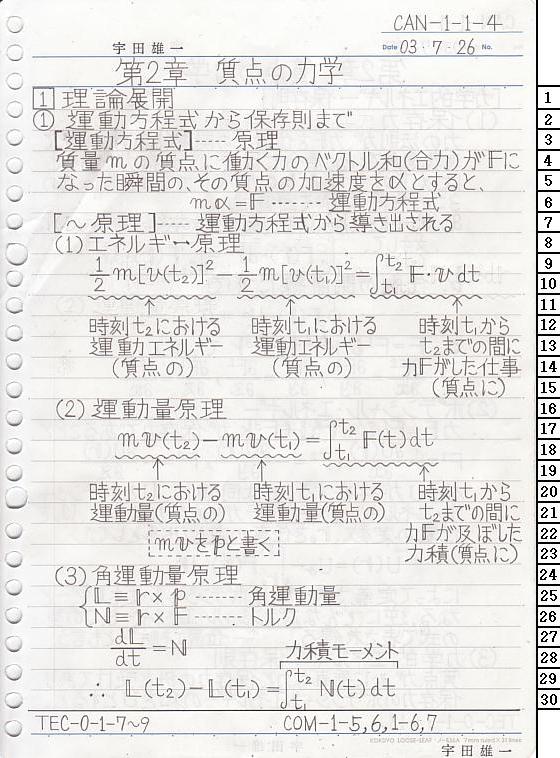 CAN-1-1-4
宇田雄一
Date 03・7・26 No.
第2章 質点の力学
1 理論展開
① 運動方程式から保存則まで
[運動方程式]----- 原理
質量mの質点に働く力のベクトル和(合力)が𝔽に
なった瞬間の、その質点の加速度を𝕒とすると、
m𝕒=𝔽 ------- 運動方程式
[~原理]----- 運動方程式から導き出される
(1)エネルギー原理
1/2 m[𝕧(t₂)]²－1/2 m[𝕧(t₁)]²=∫_{t₁}^{t₂} 𝔽・𝕧dt
時刻t₂における 時刻t₁における 時刻t₁から
運動エネルギー 運動エネルギー t₂までの間に
(質点の) (質点の) 力𝔽がした仕事
(質点に)
(2)運動量原理
m𝕧(t₂)－m𝕧(t₁)=∫_{t₁}^{t₂} 𝔽(t)dt
時刻t₂における 時刻t₁における 時刻t₁から
運動量(質点の) 運動量(質点の) t₂までの間に
m𝕧を𝕡と書く 力𝔽が及ぼした
力積(質点に)
(3)角運動量原理
{𝕃≡𝕣×𝕡 ------- 角運動量
ℕ≡𝕣×𝔽 ------- トルク
d𝕃/dt=ℕ
力積モーメント
∴ 𝕃(t₂)－𝕃(t₁)=∫_{t₁}^{t₂} ℕ(t)dt
TEC-0-1-7~9 COM-1-5,6,1-6,7
KOKUYO LOOSE-LEAF ノ-836A 7mm ruled×31 lines
宇田雄一
1
2
3
4
5
6
7
8
9
10
11
12
13
14
15
16
17
18
19
20
21
22
23
24
25
26
27
28
29
30